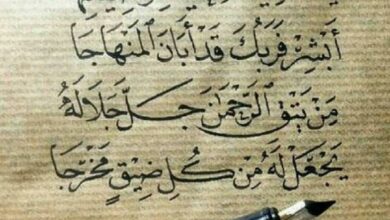 أَبْشِرْ فَرَبُّكَ قَدْ أَبَانَ الْمِنْهَاجَا
مَنْ يَتَّقِ الرَّحْمٰنَ جَلَّ جَلَالُهُ
يَجْعَلْ لَهُ مِنْ كُلِّ ضِيْقٍ مَخْرَجَا